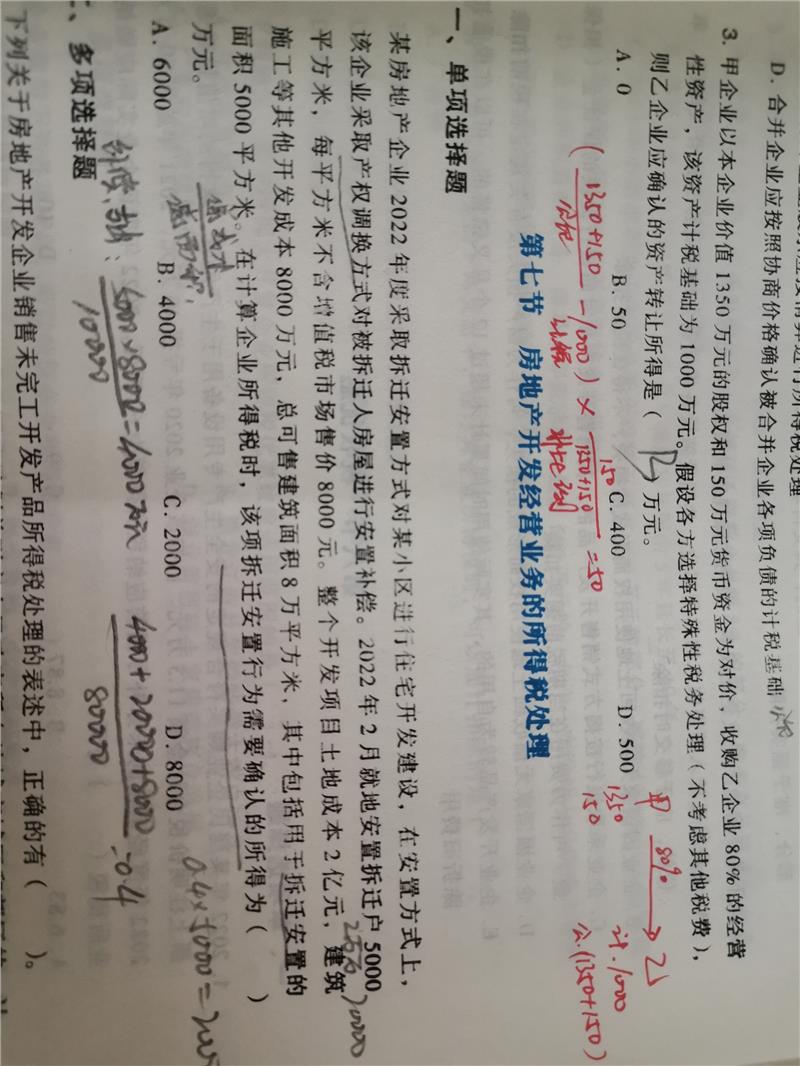 D. 合并企业应按照协商价格确认被合并企业各项负债的计税基础
3. 甲企业以本企业价值 1350 万元的股权和 150 万元货币资金为对价，收购乙企业 80% 的经营
性资产，该资产计税基础为 1000 万元。假设各方选择特殊性税务处理（不考虑其他税费），
则乙企业应确认的资产转让所得是（ B ）万元。
A. 0 B. 50 C. 400 D. 500
甲 80% 乙
1350
150
计.1000
公.(1350+150)
(1350+150 - 1000) × 150
1350+150 = 50
公允
第七节 房地产开发经营业务的所得税处理
一、单项选择题
某房地产企业 2022 年度采取拆迁安置方式对某小区进行住宅开发建设，在安置方式上，
该企业采取产权调换方式对被拆迁人房屋进行安置补偿。2022 年 2 月就地安置拆迁户 5000
平方米，每平方米不含增值税市场售价 8000 元。整个开发项目土地成本 2 亿元，建筑
20000
施工等其他开发成本 8000 万元，总可售建筑面积 8 万平方米，其中包括用于拆迁安置的
面积 5000 平方米。在计算企业所得税时，该项拆迁安置行为需要确认的所得为（ ）
万元。
A. 6000 B. 4000 C. 2000 D. 8000
5000×8000
10000
=4000万元
4000+20000+8000
80000
=0.4
0.4×5000=2000
二、多项选择题
下列关于房地产开发企业销售未完工开发产品所得税处理的表述中，正确的有（ ）。